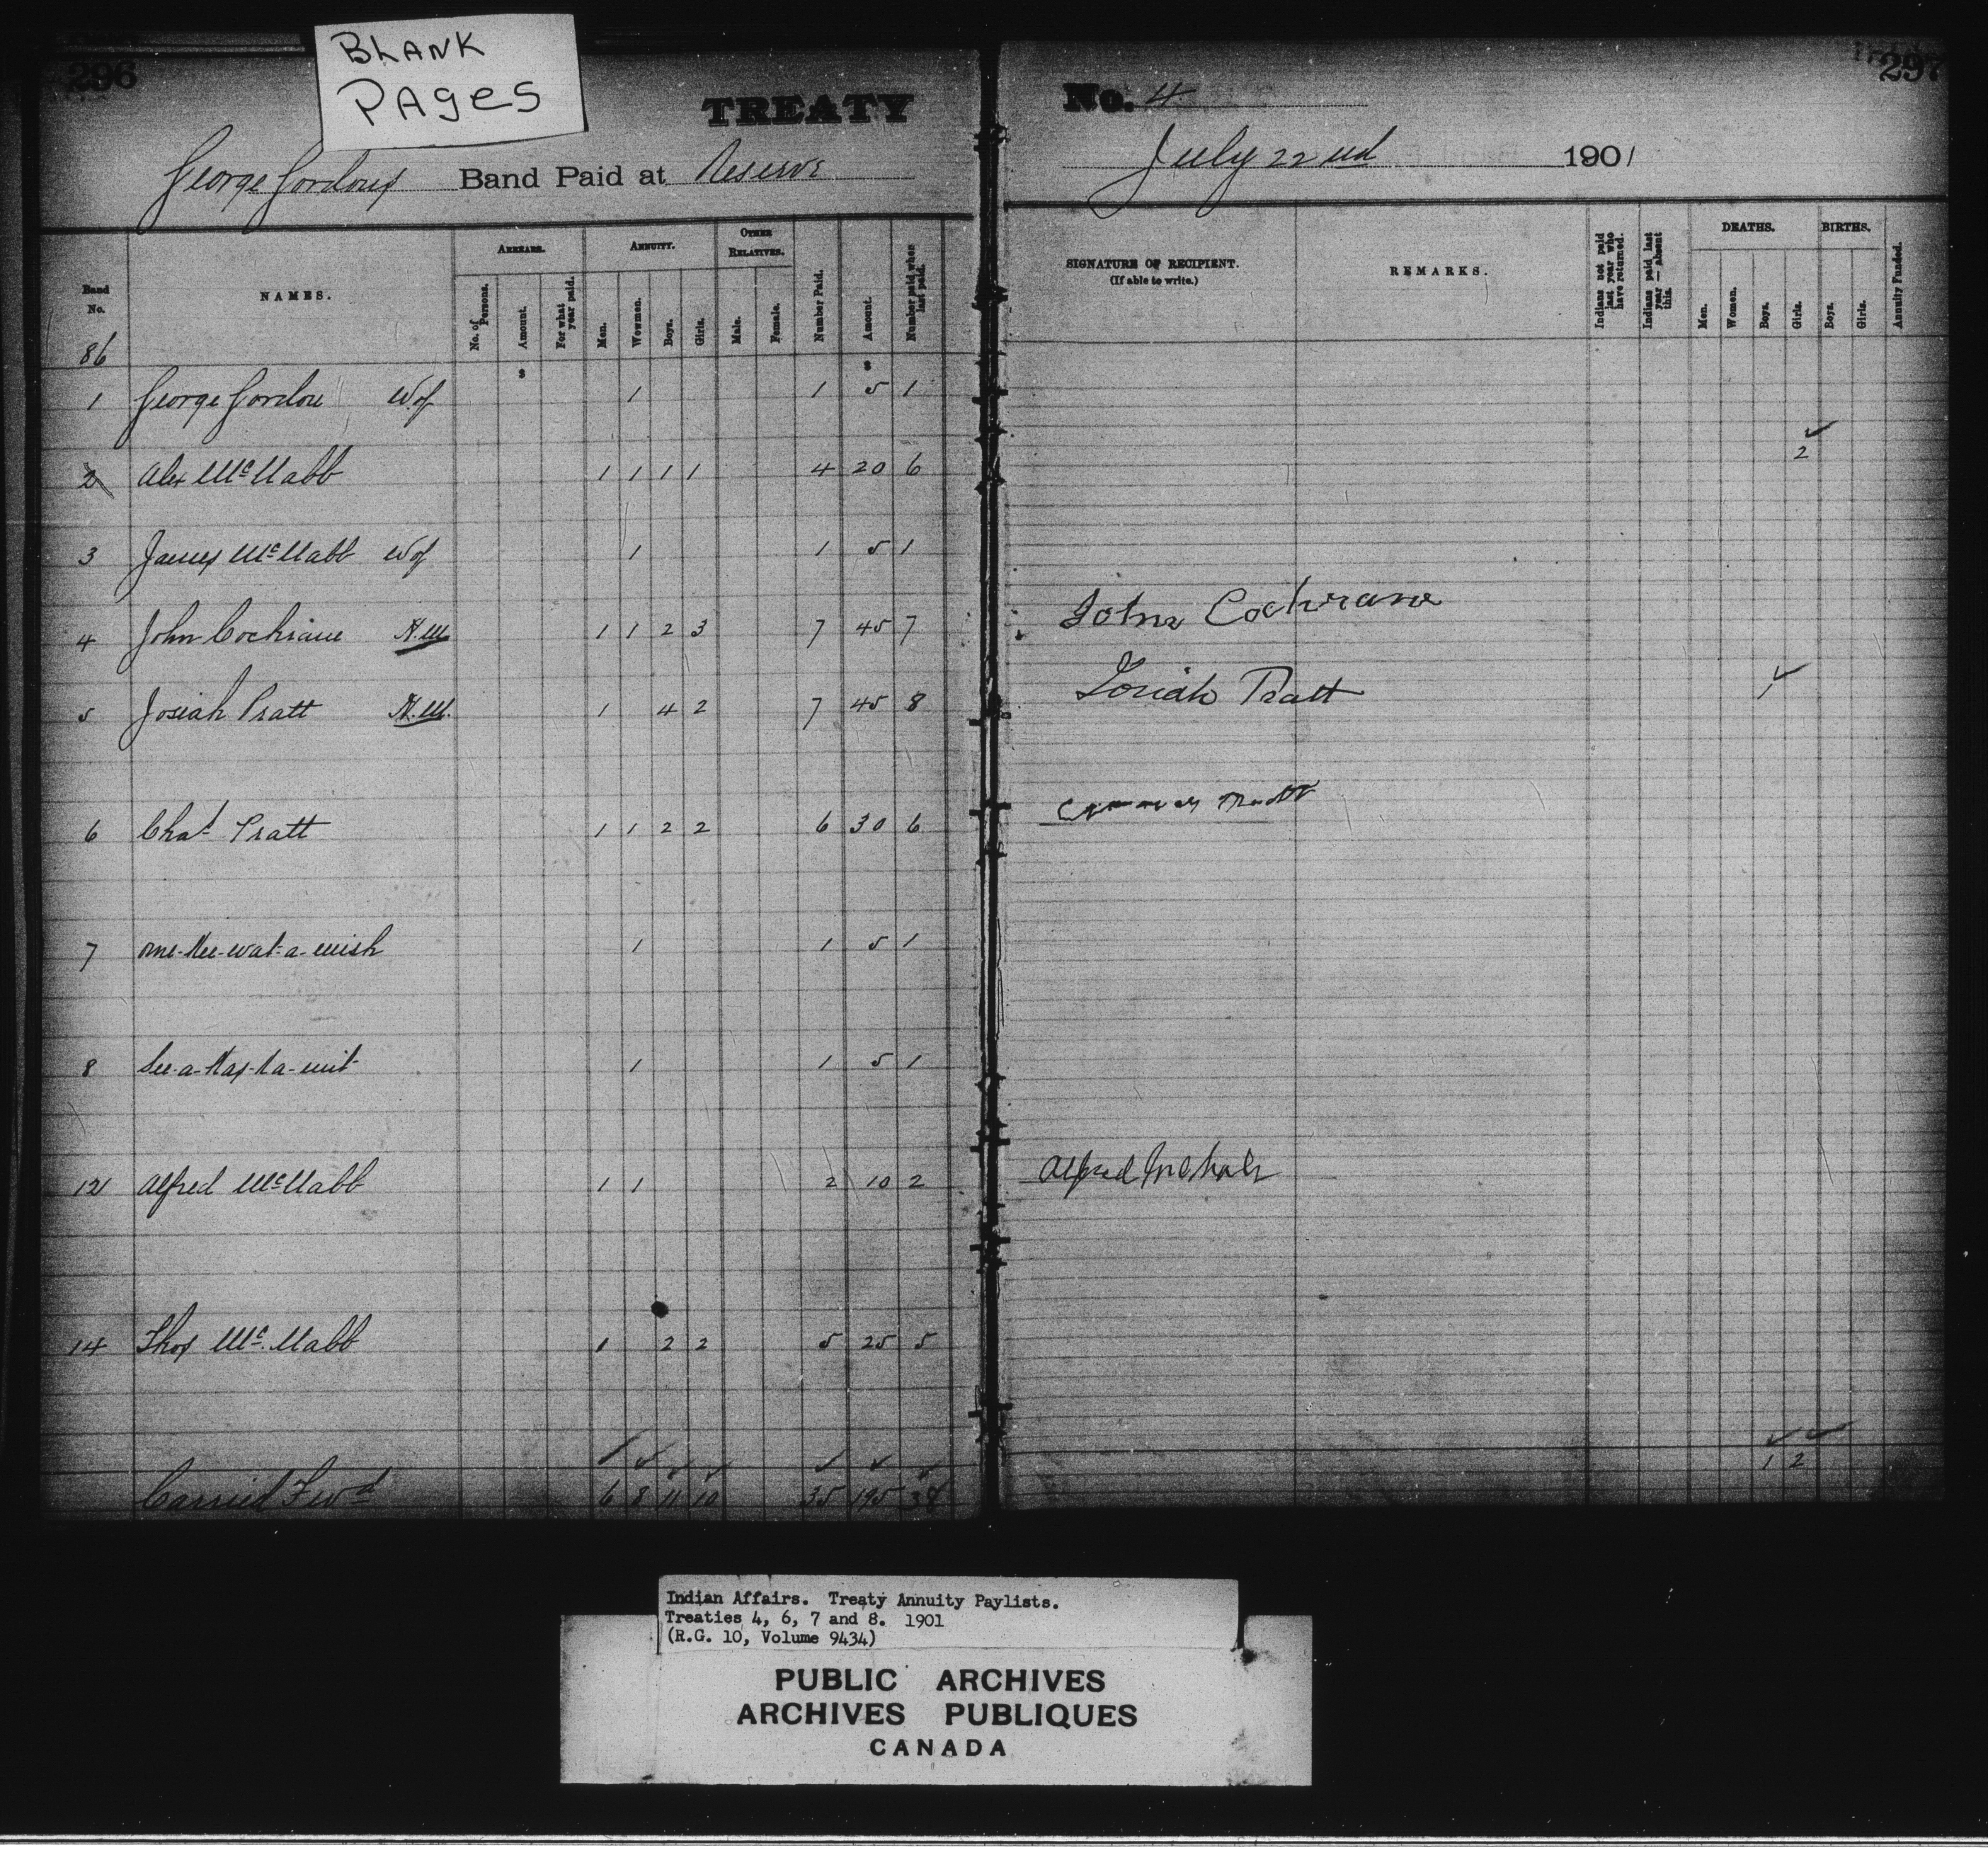 BLANK
PAGES
296
TREATY
No. 4
297
George Gordons Band Paid at Reserve
July 22nd 1901
Band No.
NAMES.
ARREARS.
No. of Persons.
Amount.
For what year paid.
ANNUITY.
Men.
Women.
Boys.
Girls.
OTHER RELATIVES.
Male.
Female.
Number Paid.
Amount.
Number paid when last paid.
SIGNATURE OF RECIPIENT.
(If able to write.)
REMARKS.
Indians not paid last year who have returned.
Indians paid last year — absent this.
DEATHS.
Men.
Women.
Boys.
Girls.
BIRTHS.
Boys.
Girls.
Annuity Funded.
86
$ $
1 George Gordon W of 1 1 5 1
2 Alex McNabb 1 1 1 1 4 20 6 2
3 James McNabb W of 1 1 5 1
4 John Cochrane H.M. 1 1 2 3 7 45 7 John Cochrane
5 Josiah Pratt H.M. 1 4 2 7 45 8 Josiah Pratt 1
6 Chas Pratt 1 1 2 2 6 30 6
7 1 1 5 1
8 1 1 5 1
12 Alfred McNabb 1 1 2 10 2 Alfred McNab
14 Thos McNabb 1 2 2 5 25 5
Carried Fwd 6 8 11 10 35 195 38 1 2
Indian Affairs. Treaty Annuity Paylists.
Treaties 4, 6, 7 and 8. 1901
(R.G. 10, Volume 9434)
PUBLIC ARCHIVES
ARCHIVES PUBLIQUES
CANADA